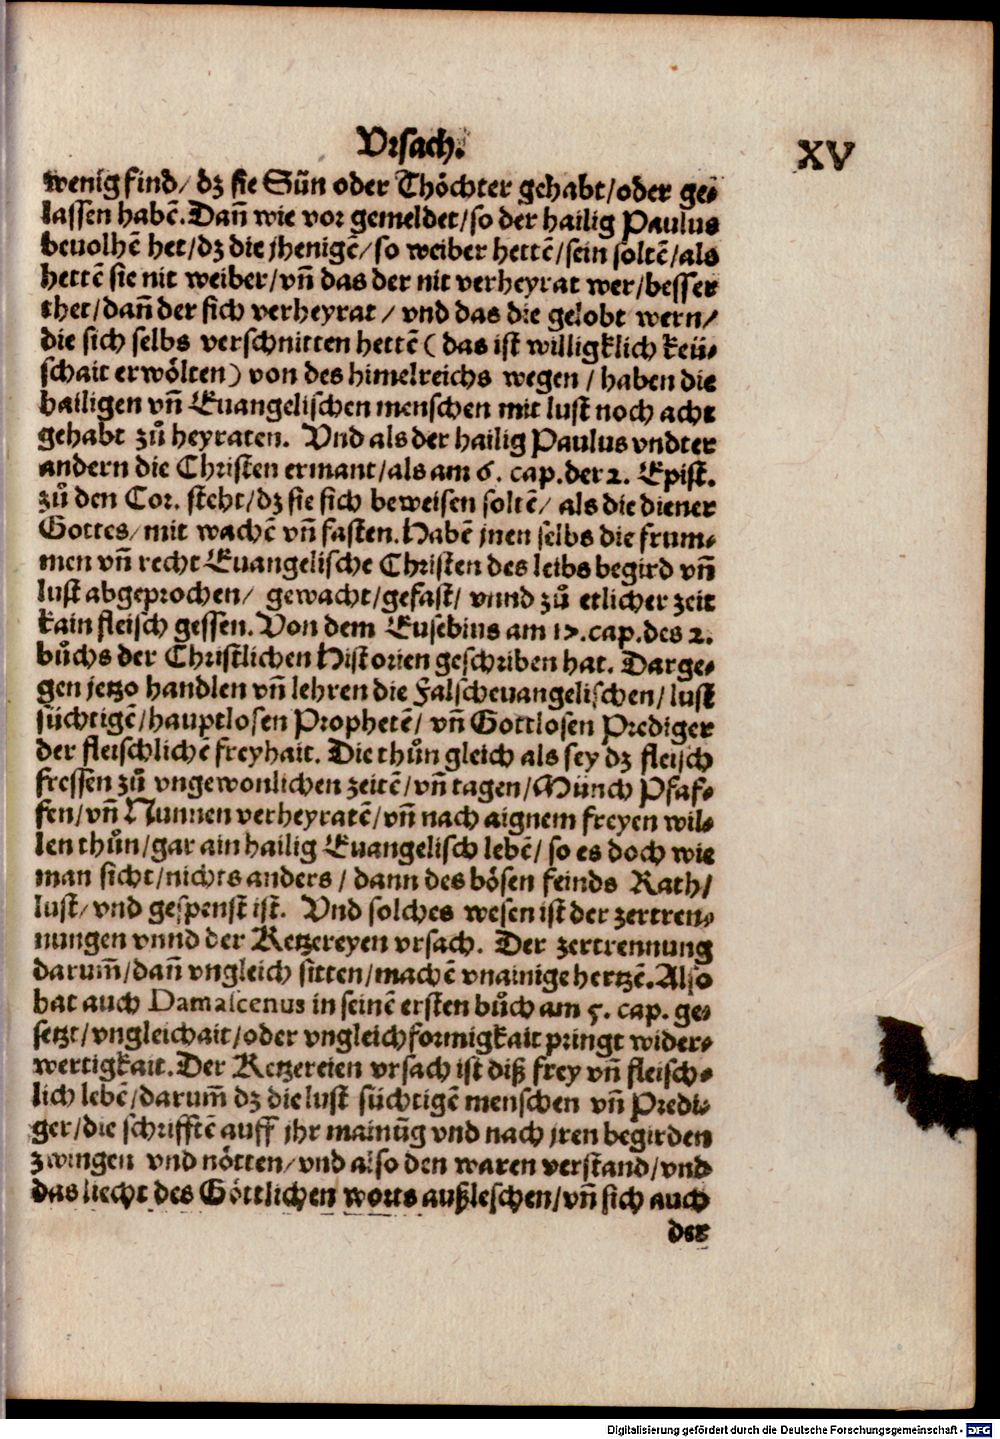 Vrsach.
XV
wenig find/ dz sie Sün oder Thöchter gehabt/oder ge⸗
lassen habē. Dañ wie vor gemeldet/so der hailig Paulus
beuolhē het/dz die jhenigē/so weiber hettē/sein soltē/als
hettē sie nit weiber/vñ das der nit verheyrat wer/besser
thet/dañ der sich verheyrat / vnd das die gelobt wern/
die sich selbs verschnitten hettē ( das ist willigklich keü⸗
schait erwölten) von des himelreichs wegen / haben die
hailigen vñ Euangelischen menschen mit lust noch acht
gehabt zů heyraten. Vnd als der hailig Paulus vndter
andern die Christen ermant/als am 6. cap.der 2. Epist.
zů den Cor. steht/dz sie sich beweisen soltē/ als die diener
Gottes/mit wachē vñ fasten. Habē jnen selbs die frum⸗
men vñ recht Euangelische Christen des leibs begird vñ
lust abgeprochen/ gewacht/gefast/ vnnd zů etlicher zeit
kain fleisch gessen. Von dem Eusebius am 17.cap.des 2.
bůchs der Christlichen Historien geschriben hat. Darge⸗
gen jetzo handlen vñ lehren die Falscheuangelischen/lust
süchtigē/hauptlosen Prophetē/ vñ Gottlosen Prediger
der fleischlichē freyhait. Die thůn gleich als sey dz fleisch
fressen zů vngewonlichen zeitē/vñ tagen/Münch Pfaf⸗
fen/vñ Nunnen verheyratē/vñ nach aignem freyen wil⸗
len thůn/gar ain hailig Euangelisch lebē/so es doch wie
man sicht/nichts anders / dann des bösen feinds Rath/
lust/vnd gespenst ist. Vnd solches wesen ist der zertren⸗
nungen vnnd der Ketzereyen vrsach. Der zertrennung
darum̃/dañ vngleich sitten/machē vnainige hertzē. Also
hat auch Damascenus in seinē ersten bůch am 5. cap. ge⸗
setzt/vngleichait/oder vngleichformigkait pringt wider⸗
wertigkait. Der Ketzereien vrsach ist diß frey vñ fleisch⸗
lich lebē/darum̃ dz die lust süchtigē menschen vñ Predi⸗
ger/die schrifftē auff jhr mainūg vnd nach jren begirden
zwingen vnd nötten/vnd also den waren verstand/vnd
das liecht des Göttlichen worts außleschen/vñ sich auch
der
Digitalisierung gefördert durch die Deutsche Forschungsgemeinschaft - DFG